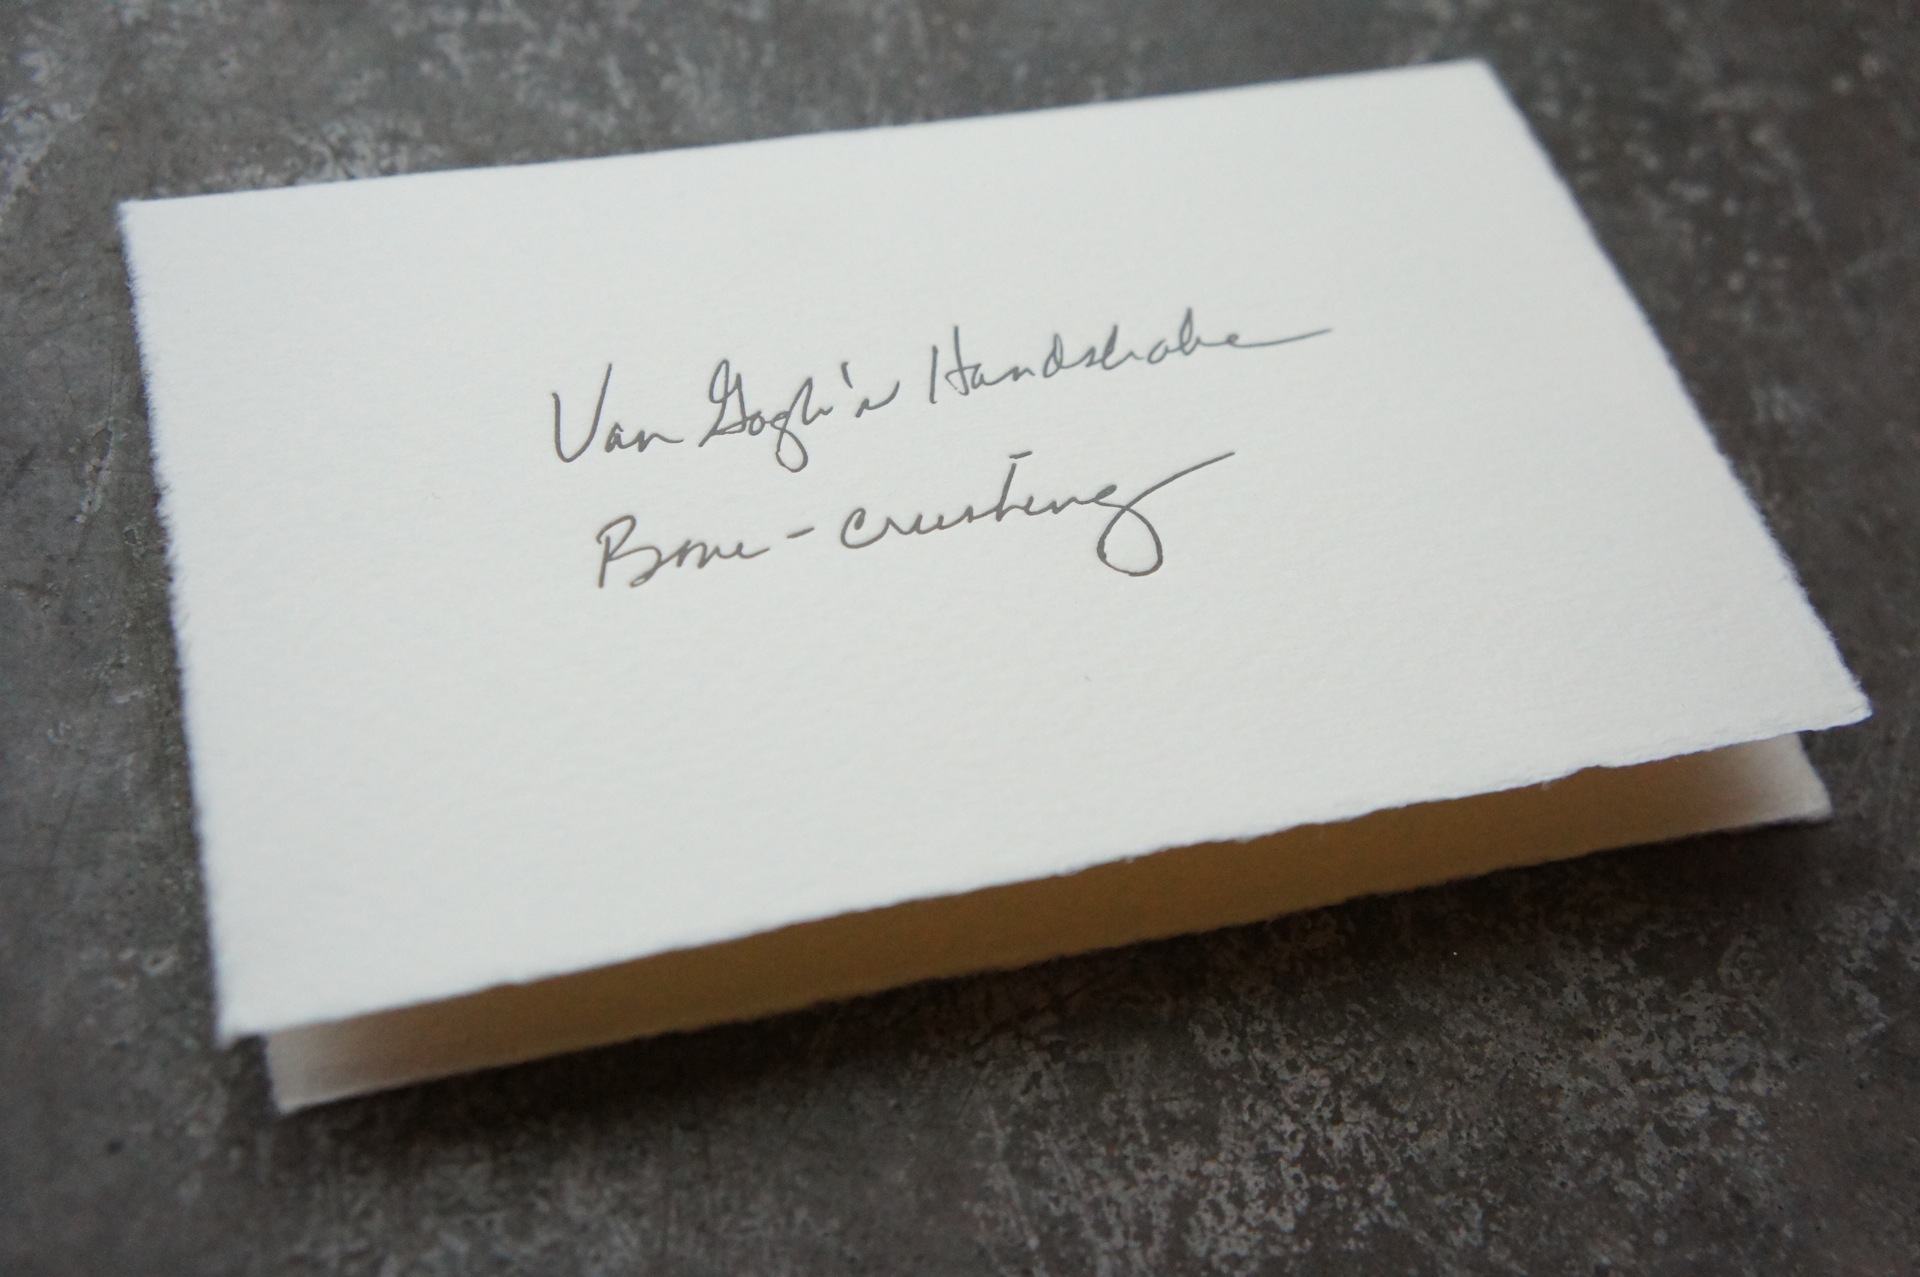 Van Gogh's Handshake
Bone-crushing